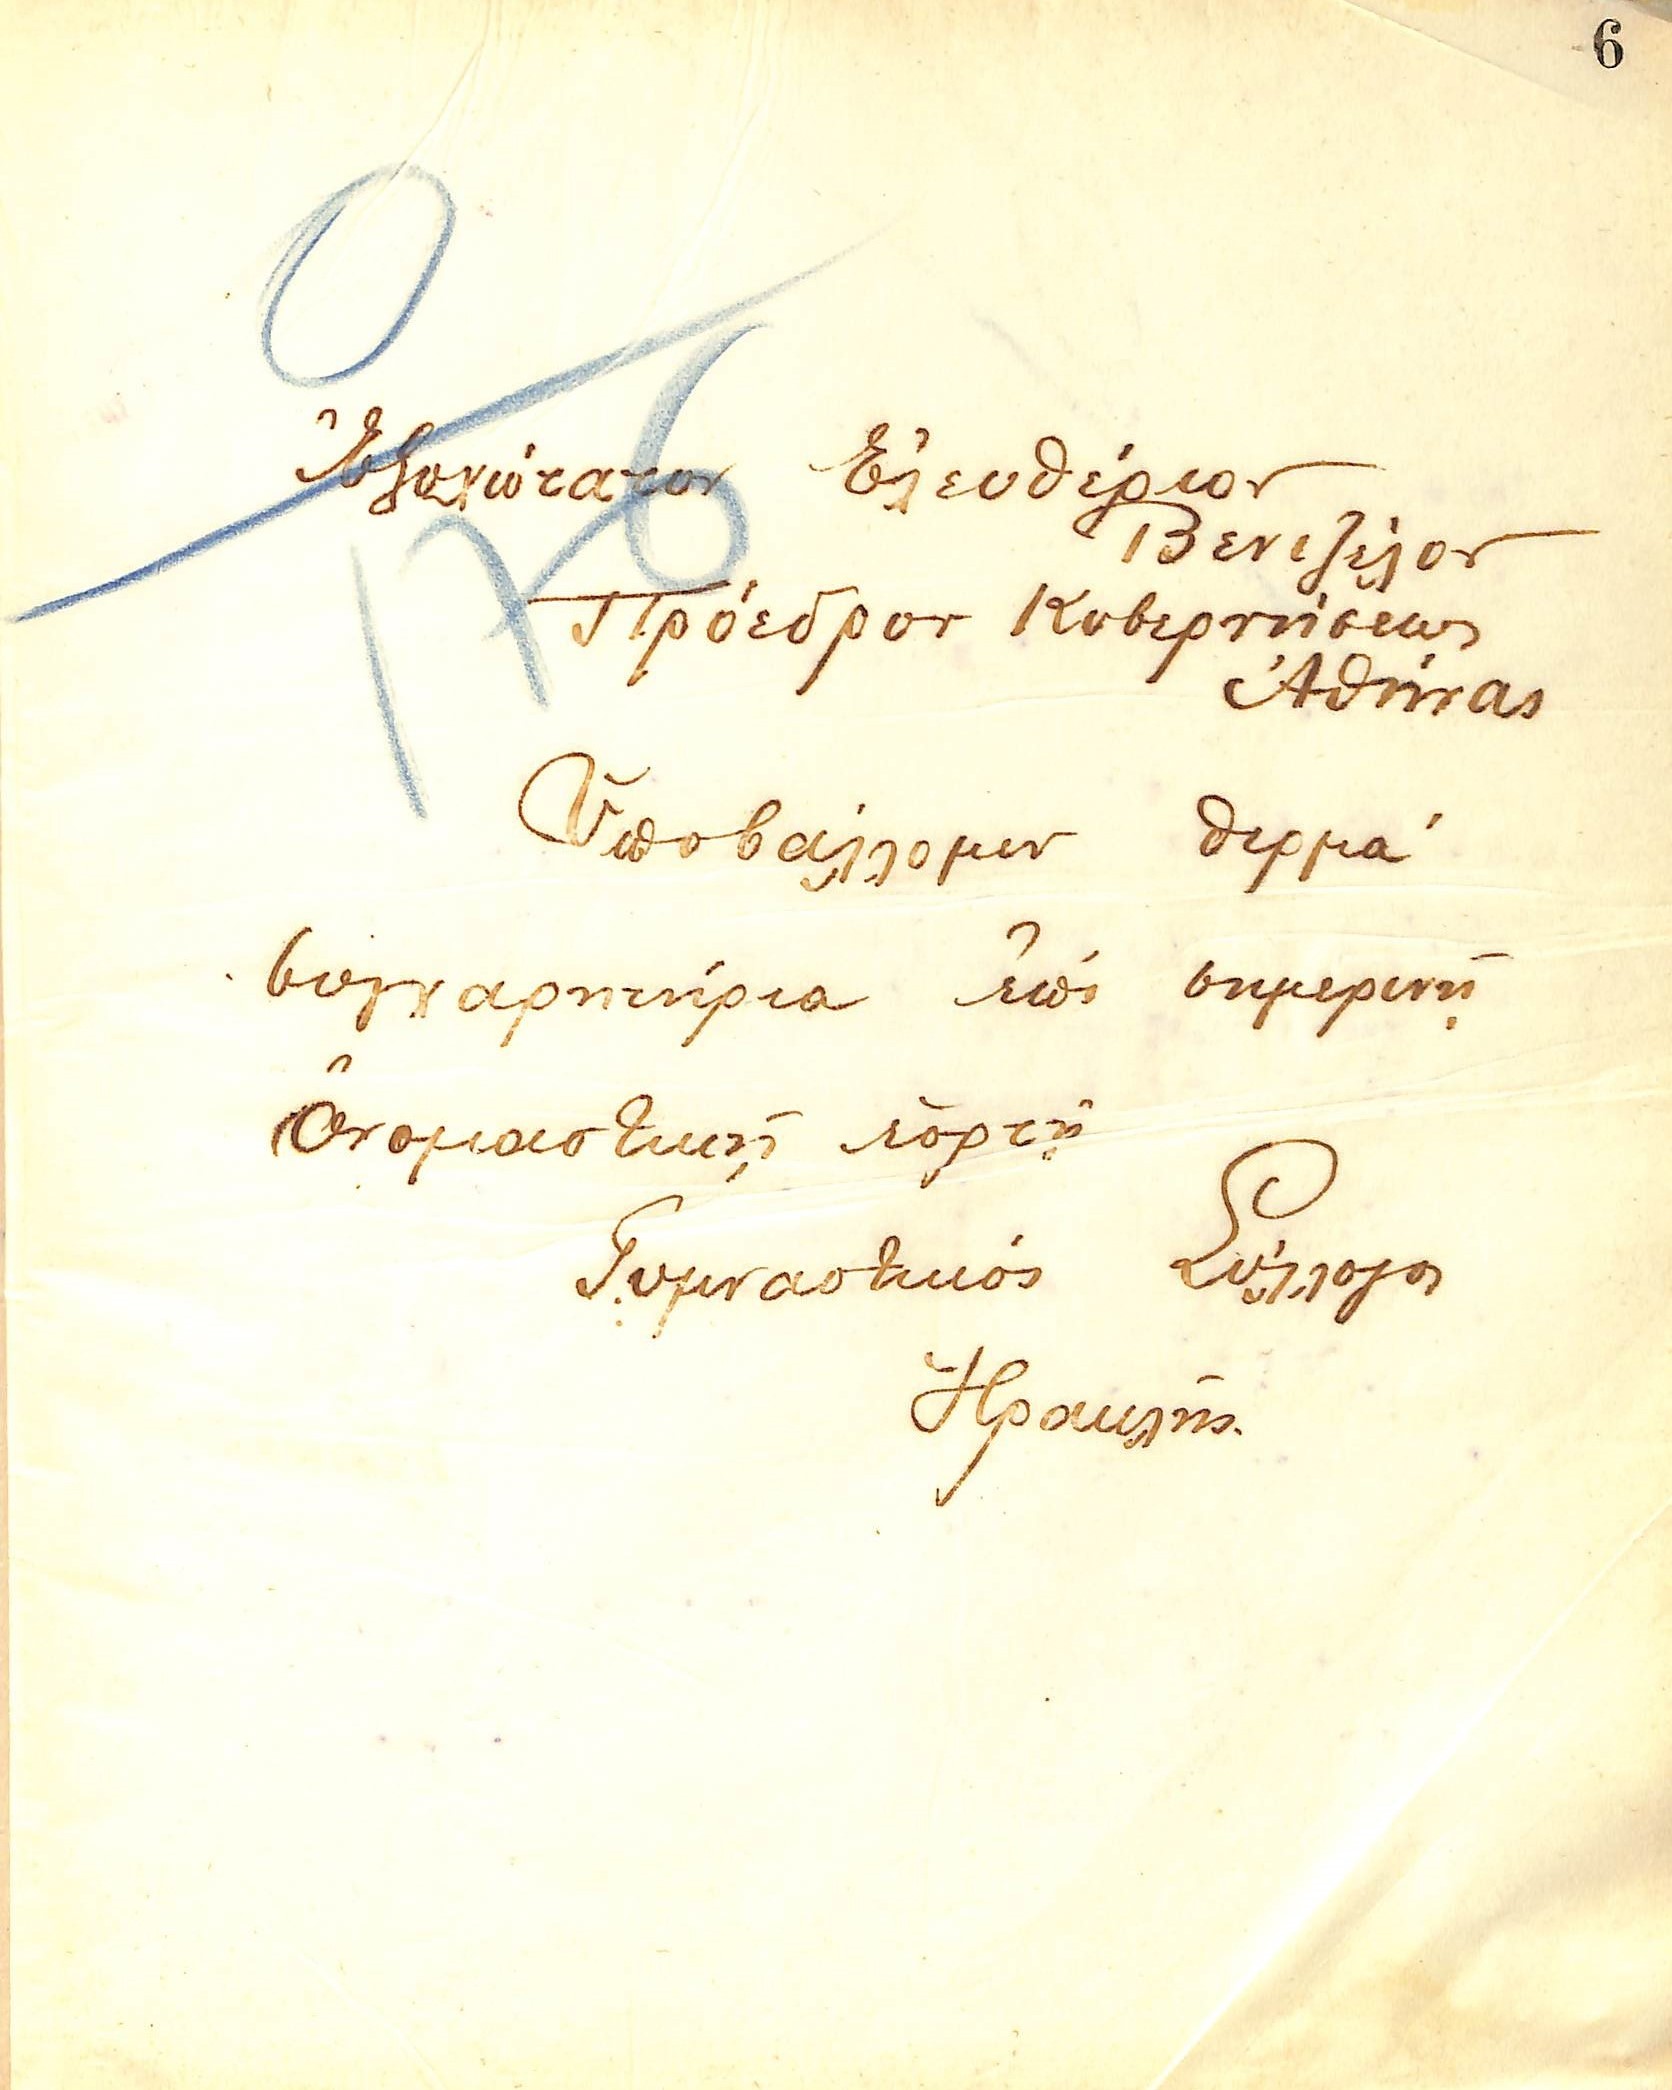 6
Ἐξοχώτατον Ἐλευθέριον
Βενιζέλον
Πρόεδρον Κυβερνήσεως
Ἀθήνας
Ὑποβάλλομεν θερμά
συγχαρητήρια ἐπί σημερινῇ
Ὀνομαστικῇ ἑορτῇ
Γυμναστικός Σύλλογος
Ἡρακλῆς.